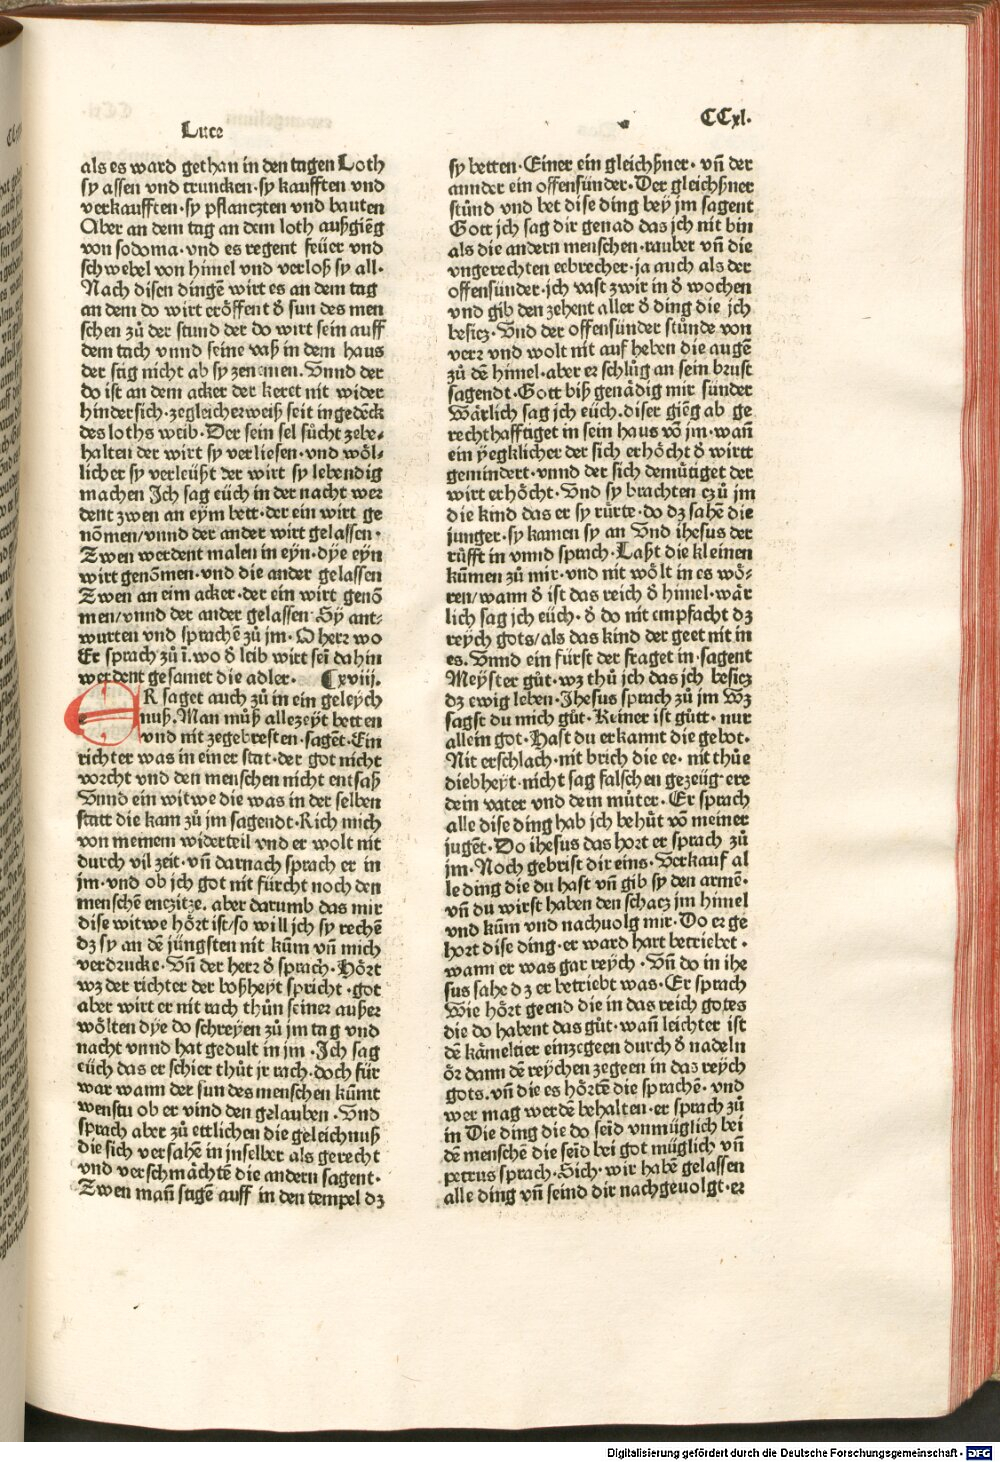 Luce
CCxl.
als es ward gethan in den tagen Loth
sy assen vnd truncken·sy kaufften vnd
verkaufften·sy pflanczten vnd bauten
Aber an dem tag an dem loth außgiẽg
von sodoma·vnd es regent feüer vnd
schwebel von himel vnd verloß sy all·
Nach disen dingẽ wirt es an dem tag
an dem do wirt eröffent d̕ sun des men
schen zů der stund der do wirt sein auff
dem tach vnnd seine vaß in dem haus
der stig nicht ab sy zenemen. Vnnd der
do ist an dem acker der keret nit wider
hindersich·zegleicherweiß seit ingedẽck
des loths weib·Der sein sel sůcht zebe⸗
halten der wirt sy verliesen·vnd wöl⸗
licher sy verleüßt der wirt sy lebendig
machen Jch sag eüch in der nacht wer
dent zwen an eym bett·der ein wirt ge
nõmen/vnnd der ander wirt gelassen·
Zwen werdent malen in eyn·dye eyn
wirt genõmen·vnd die ander gelassen
Zwen an eim acker·der ein wirt genõ
men/vnnd der ander gelassen·Sy ant⸗
wurten vnd sprachẽ zů jm·O herr wo
Er sprach zů ĩ.wo d̕ leib wirt seĩ dahin
werdent gesamet die adler· Cxviij.
ER saget auch zů in ein geleych
nuß.Man můß allezeyt betten
vnd nit zegebresten·sagẽt·Ein
richter was in einer stat·der got nicht
vorcht vnd den menschen nicht entsaß
Vnnd ein witwe die was in der selben
statt die kam zů jm sagendt·Rich mich
von meinem widerteil vnd er wolt nit
durch vil zeit·vñ darnach sprach er in
jm·vnd ob jch got nit fürcht noch den
menschẽ enczitze. aber darumb das mir
dise witwe hört ist/so will jch sy rechẽ
dz sy an dẽ jüngsten nit kũm vñ mich
verdrucke·Vñ der herr d̕ sprach·Hört
wz der richter der boßheyt spricht·got
aber wirt er nit rach thůn seiner außer
wölten dye do schreyen zů jm tag vnd
nacht vnnd hat gedult in jm·Jch sag
eüch das er schier thůt jr rach·doch für
war wann der sun des menschen kũmt
wenstu ob er vind den gelauben·Vnd
sprach aber zů ettlichen die geleichnuß
die sich versahẽ in jnselber als gerecht
vnd verschmächtẽ die andern sagent·
Zwen mañ stigẽ auff in den tempel dz
sy betten·Einer ein gleichßner·vñ der
annder ein offensünder·Der gleichßner
stůnd vnd bet dise ding bey jm sagent
Gott jch sag dir genad das jch nit bin
als die andern menschen·rauber vñ die
vngerechten eebrecher·ja auch als der
offensünder·jch vast zwir in d̕ wochen
vnd gib den zehent aller d̕ ding die jch
besicz·Vnd der offensünder stůnde von
verr vnd wolt nit auf heben die augẽ
zů dẽ himel·aber er schlůg an sein brust
sagendt·Gott biß genädig mir sünder
Wärlich sag jch eüch.diser giẽg ab ge
rechthafftiget in sein haus võ jm·wañ
ein yegklicher der sich erhöcht d̕ wirtt
gemindert·vnnd der sich demůtiget der
wirt erhöcht·Vnd sy brachten czů jm
die kind das er sy rürte·do dz sahẽ die
junger·sy kamen sy an Vnd ihesus der
rüfft in vnnd sprach·Laßt die kleinen
kũmen zů mir·vnd nit wölt in es wö⸗
ren/wann d̕ ist das reich d̕ himel·wär
lich sag jch eüch·d̕ do nit empfacht dz
reych gots/als das kind der geet nit in
es.Vnnd ein fürst der fraget in·sagent
Meyster gůt·wz thů jch das jch besicz
dz ewig leben·Jhesus sprach zů jm Wz
sagst du mich gůt·Keiner ist gůtt·nur
allein got·Hast du erkannt die gebot·
Nit erschlach·nit brich die ee·nit thůe
diebheyt·nicht sag falschen gezeüg·ere
dein vater vnd dein můter·Er sprach
alle dise ding hab jch behůt võ meiner
jugẽt·Do ihesus das hort er sprach zů
jm·Noch gebrist dir eins·Verkauf al
le ding die du hast vñ gib sy den armẽ·
vñ du wirst haben den schacz jm himel
vnd kũm vnd nachuolg mir·Do er ge
hort dise ding·er ward hart betriebet·
wann er was gar reych·Vñ do in ihe
sus sahe dz er betriebt was·Er sprach
Wie hört geend die in das reich gotes
die do habent das gůt·wañ leichter ist
dẽ kämeltier einzegeen durch d̕ nadeln
ör dann dẽ reychen zegeen in das reych
gots.vñ die es hörtẽ die sprachẽ·vnd
wer mag werdẽ behalten·er sprach zů
in Die ding die do seid vnmüglich bei
dẽ menschẽ die seid bei got müglich vñ
petrus sprach·Sich·wir habẽ gelassen
alle ding vñ seind dir nachgeuolgt·er
Digitalisierung gefördert durch die Deutsche Forschungsgemeinschaft - DFG